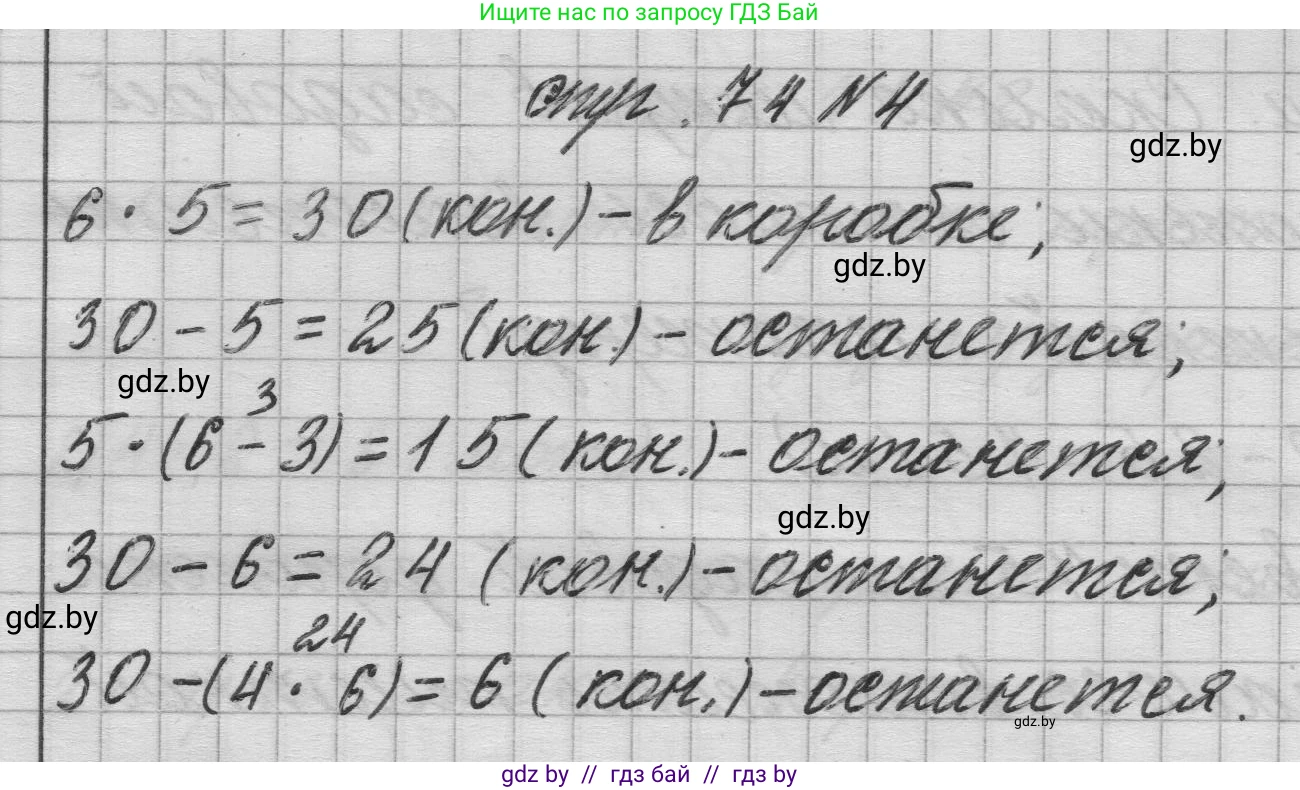 Ищите нас по запросу ГДЗ Бай
стр. 74 N 4
gdz.by
6 · 5 = 30 (кон.) - в коробке;
gdz.by
30 - 5 = 25 (кон.) - останется;
gdz.by
3
5 · (6 - 3) = 15 (кон.) - останется;
gdz.by
30 - 6 = 24 (кон.) - останется;
gdz.by
24
30 - (4 · 6) = 6 (кон.) - останется.
gdz.by
gdz by // гдз бай // гдз by